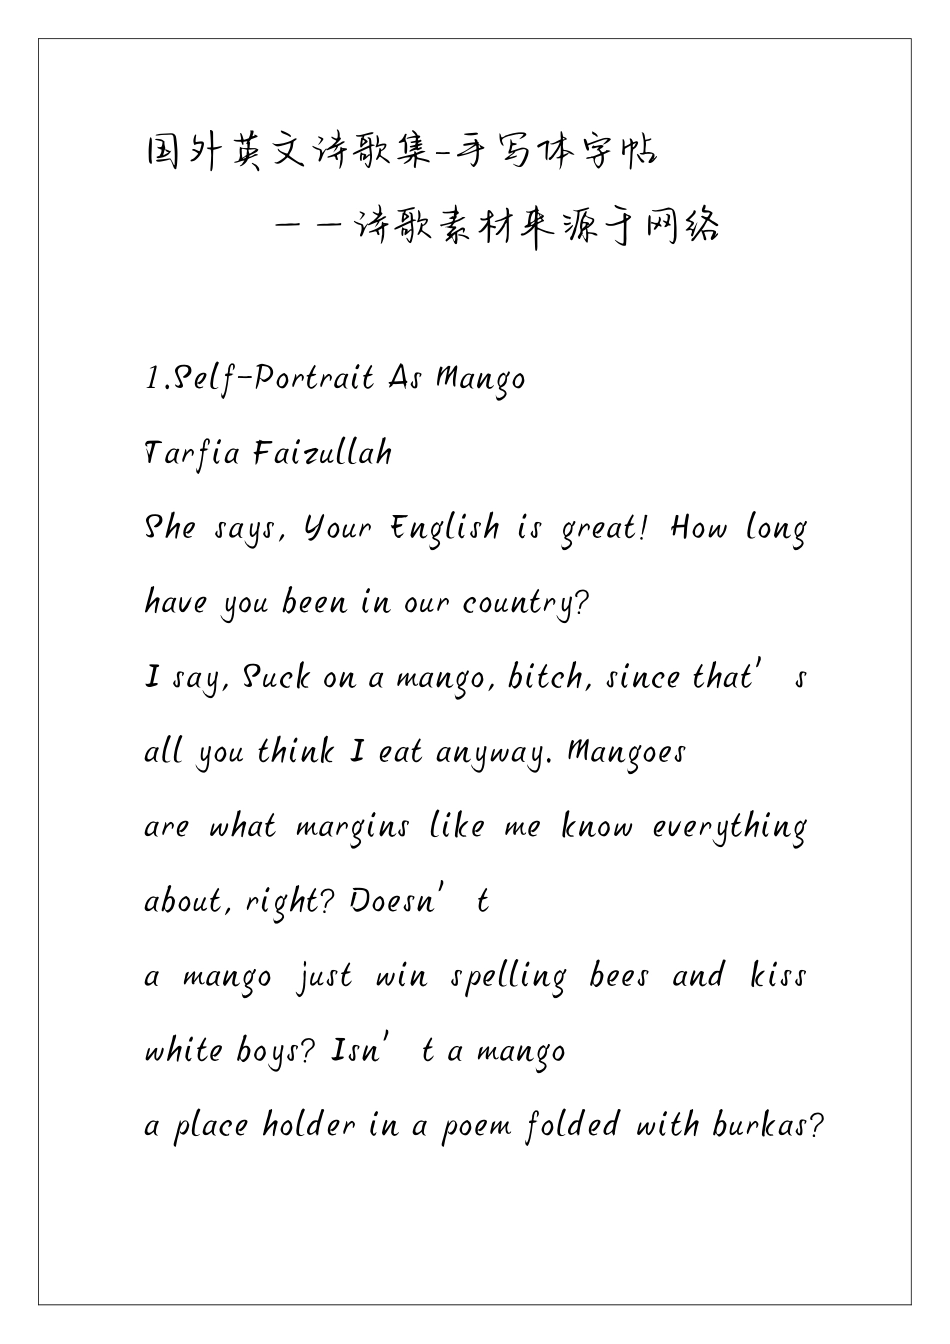 国外英文诗歌集-手写体字帖
——诗歌素材来源于网络
1.Self-Portrait As Mango
Tarfia Faizullah
She says, Your English is great! How long
have you been in our country?
I say, Suck on a mango, bitch, since that’s
all you think I eat anyway. Mangoes
are what margins like me know everything
about, right? Doesn’t
a mango just win spelling bees and kiss
white boys? Isn’t a mango
a place holder in a poem folded with burkas?